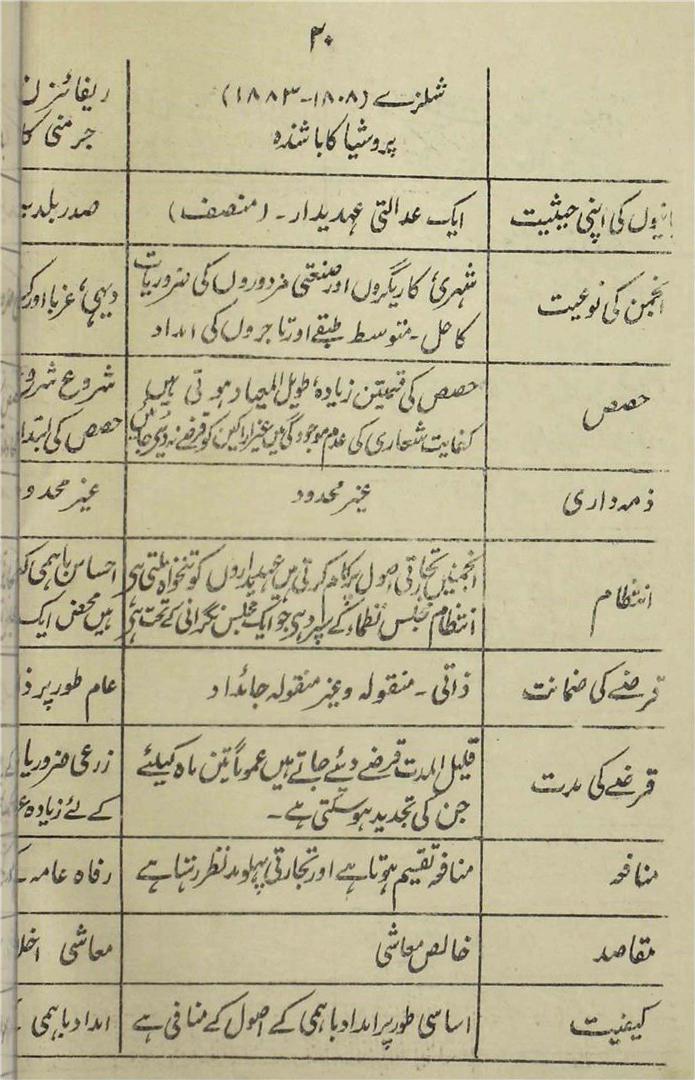 ۲۰
شلزے (۱۸۰۸-۱۸۸۳)
پروشیا کا باشندہ
ریفائزن
جرمنی کا
بانیوں کی اپنی حیثیت
ایک عدالتی عہدیدار۔ (منصف)
صدر بلدیہ
انجمن کی نوعیت
شہری، کاریگروں اور صنعتی مزدوروں کی ضروریات
کا حل۔ متوسط طبقے اور تاجروں کی امداد
دیہی، غربا اور
حصص
حصص کی قیمتیں زیادہ، طویل المیعاد ہوتی ہیں
کفایت شعاری کی عدم موجودگی میں غیر اراکین کو قرضے نہ دئیے جائیں
شروع شروع
حصص کی ابتدا
ذمہ داری
غیر محدود
غیر محدو
انتظام
انجمنیں تجارتی اصول پر کام کرتی ہیں عہدیداروں کو تنخواہ ملتی ہے
انتظام مجلس نظماء کے سپرد ہے جو ایک مجلس نگرانی کے تحت ہے
احساس باہمی
ہیں محض ایک
قرضے کی ضمانت
ذاتی۔ منقولہ و غیر منقولہ جائداد
عام طور پر ذ
قرضے کی مدت
قلیل المدت قرضے دیئے جاتے ہیں عموماً تین ماہ کیلئے
جن کی تجدید ہو سکتی ہے۔
زرعی ضروریا
کے لئے زیادہ
منافعہ
منافعہ تقسیم ہوتا ہے اور تجارتی پہلو مد نظر رہتا ہے
رفاہ عامہ
مقاصد
خالص معاشی
معاشی اخلا
کیفیت
اساسی طور پر امداد باہمی کے اصول کے منافی ہے
امداد باہمی